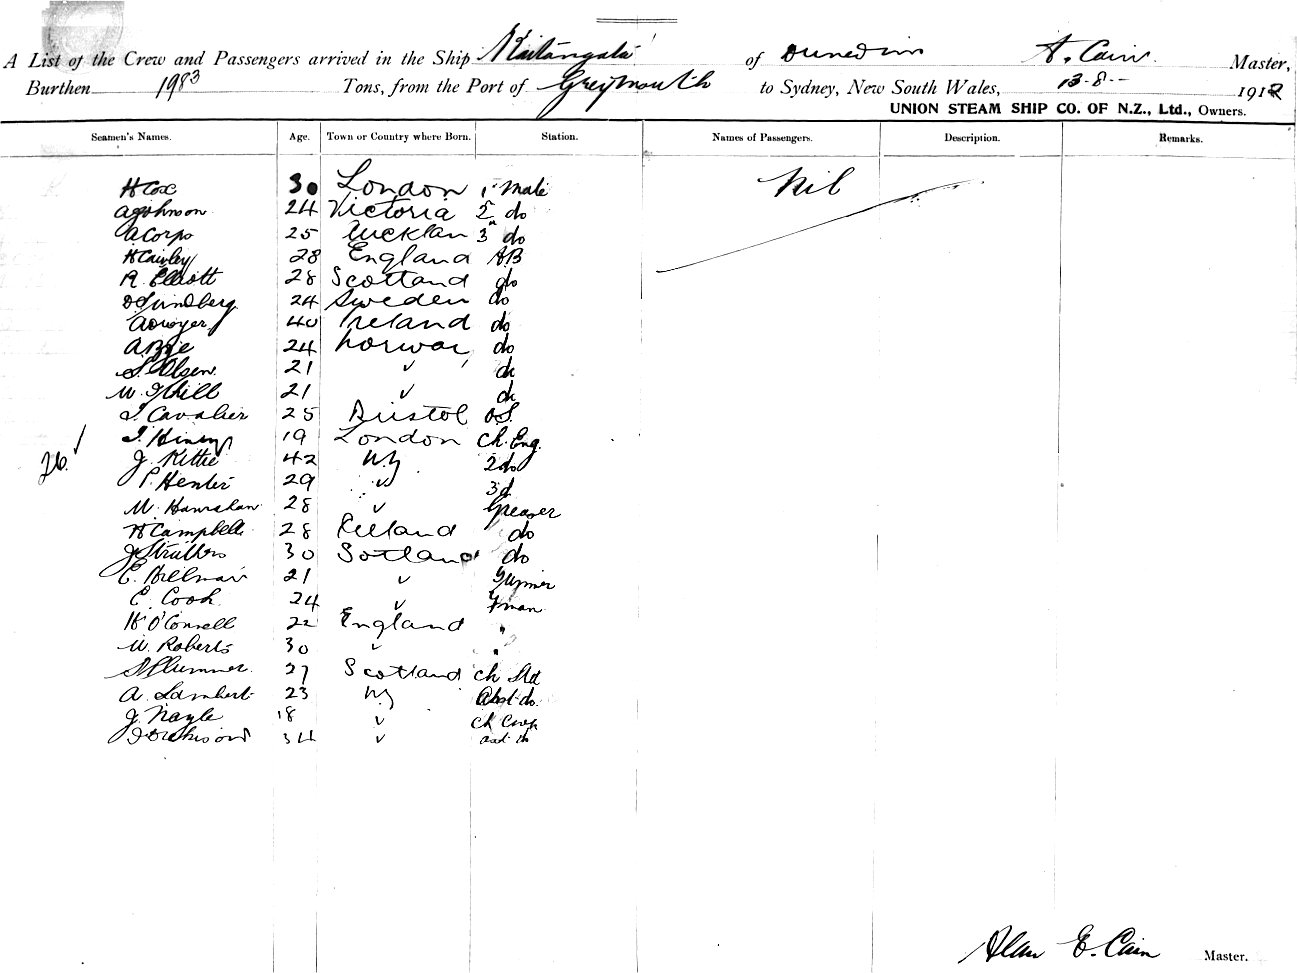 A List of the Crew and Passengers arrived in the Ship Kaitangata of Dunedin A. Cain Master,
Burthen 1983 Tons, from the Port of Greymouth to Sydney, New South Wales, 13-8- 1912
UNION STEAM SHIP CO. OF N.Z., Ltd., Owners.
Seamen's Names. Age. Town or Country where Born. Station. Names of Passengers. Description. Remarks.
H Cox 30 London 1st Mate Nil
A Johnson 24 Victoria 2 do
A Corps 25 Aucklan 3 do
H Cawley 28 England AB
R. Elliott 28 Scotland do
D Lindberg 24 Sweden do
A Dwyer 40 Ireland do
24 Norway do
S. Olsen 21 " do
W. Hill 21 " do
J. Cavalier 25 Bristol O.S.
J. Henry 19 London Ch. Eng.
26. J. Kettie 42 N.Z 2 do
P. Henler 29 " 3d
M. Hanrahan 28 " Greaser
H Campbell 28 Ireland do
J Struthers 30 Sotland do
E. Hillman 21 "
E. Cook 24 " Fman
H O'Connell 22 England "
W. Roberts 30 " "
S Plummer 27 Scotland Ch Std
A. Lambert 23 N.Z Asst do.
J. Nayle 18 " Ch Cook
J Dickison 34 "
Alan E. Cain Master.